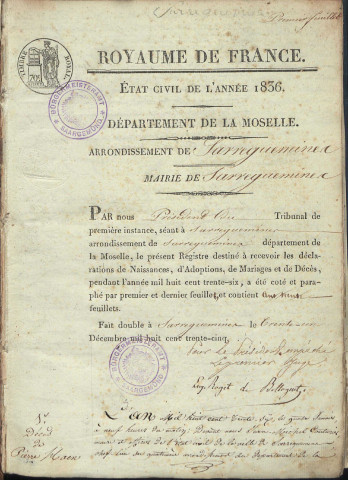 Sarreguemines
Premier feuillet
TIMBRE ROYAL
ROYAUME DE FRANCE.
ÉTAT CIVIL DE L'ANNÉE 1836.
DÉPARTEMENT DE LA MOSELLE.
BÜRGERMEISTERAMT SAARGEMÜND
ARRONDISSEMENT DE Sarreguemines
MAIRIE DE Sarreguemines
PAR nous Président du Tribunal de
première instance, séant à Sarreguemines
arrondissement de Sarreguemines département de
la Moselle, le présent Registre destiné à recevoir les décla-
rations de Naissances, d'Adoptions, de Mariages et de Décès,
pendant l'année mil huit cent trente-six, a été coté et para-
phé par premier et dernier feuillet, et contient
feuillets.
Fait double à Sarreguemines le Trente un
Décembre mil huit cent trente-cinq.
Pour le Président empêché
Le premier Juge
BÜRGERMEISTERAMT SAARGEMÜND
Décès
de
Pierre
L'an Mil huit cent trente Six, le
à neuf heures du matin, Devant nous Pierre
de la ville de Sarreguemines
chef lieu du département de la